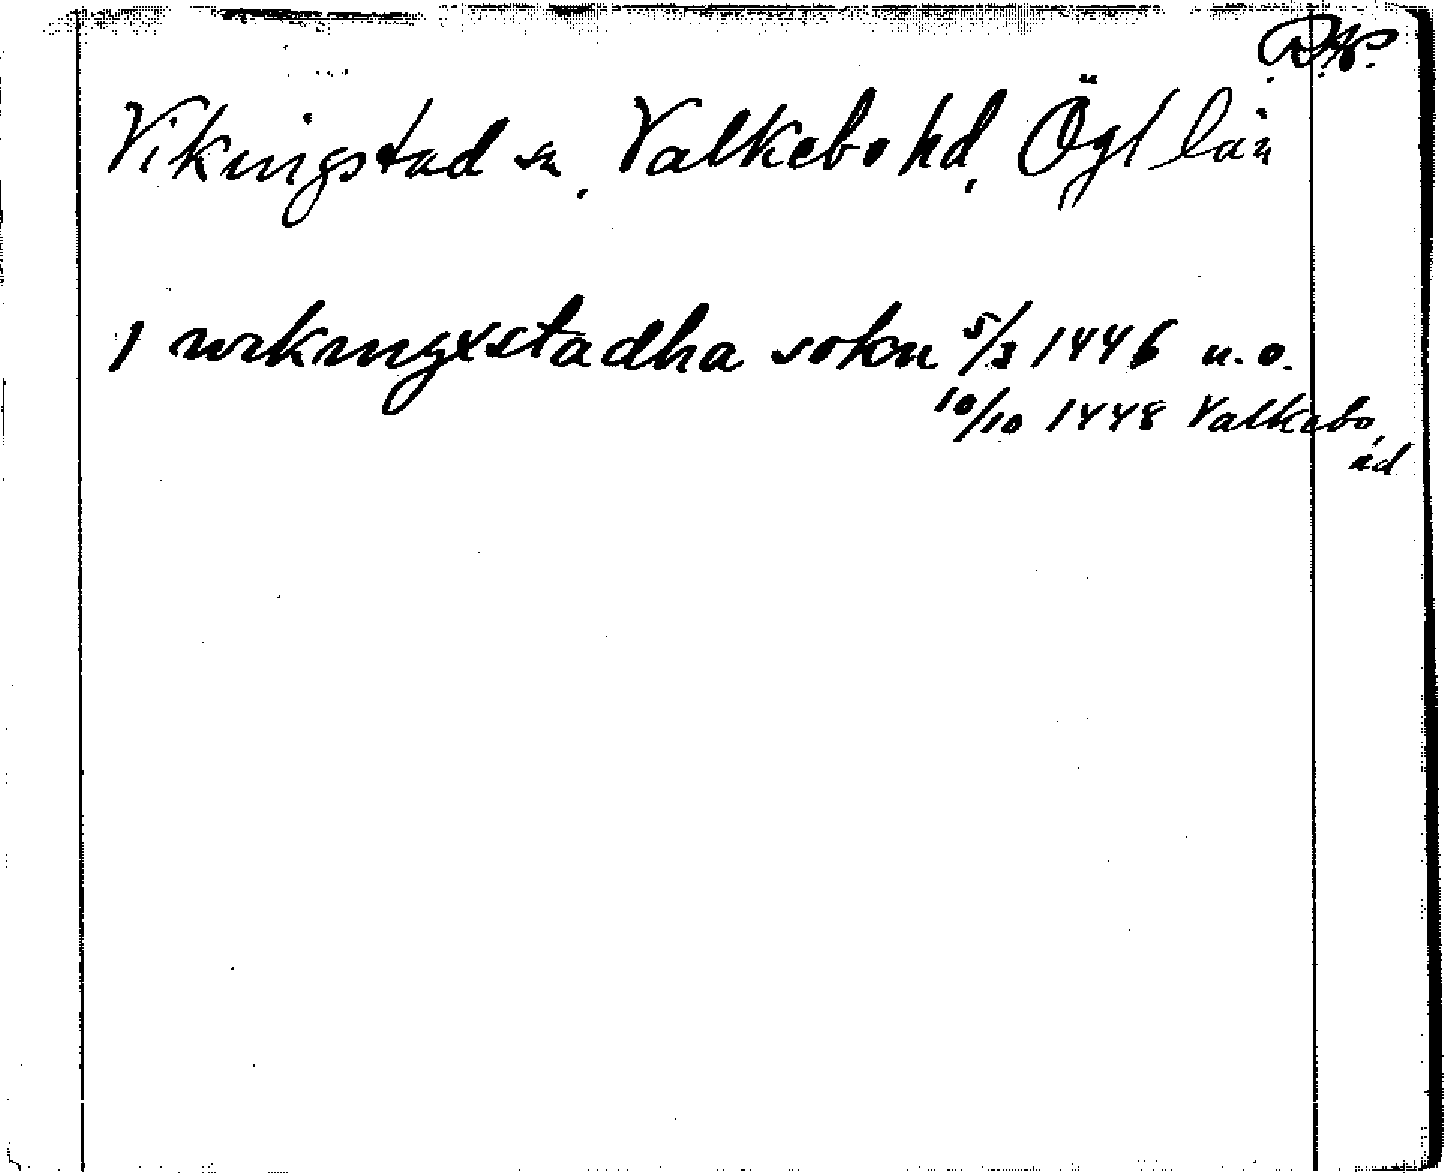 Vikingstad sn, Valkebo hd, Ögl län
I wikingxstadha sokn 5/3 1446 u. o.
10/10 1448 Valkebo,
äd